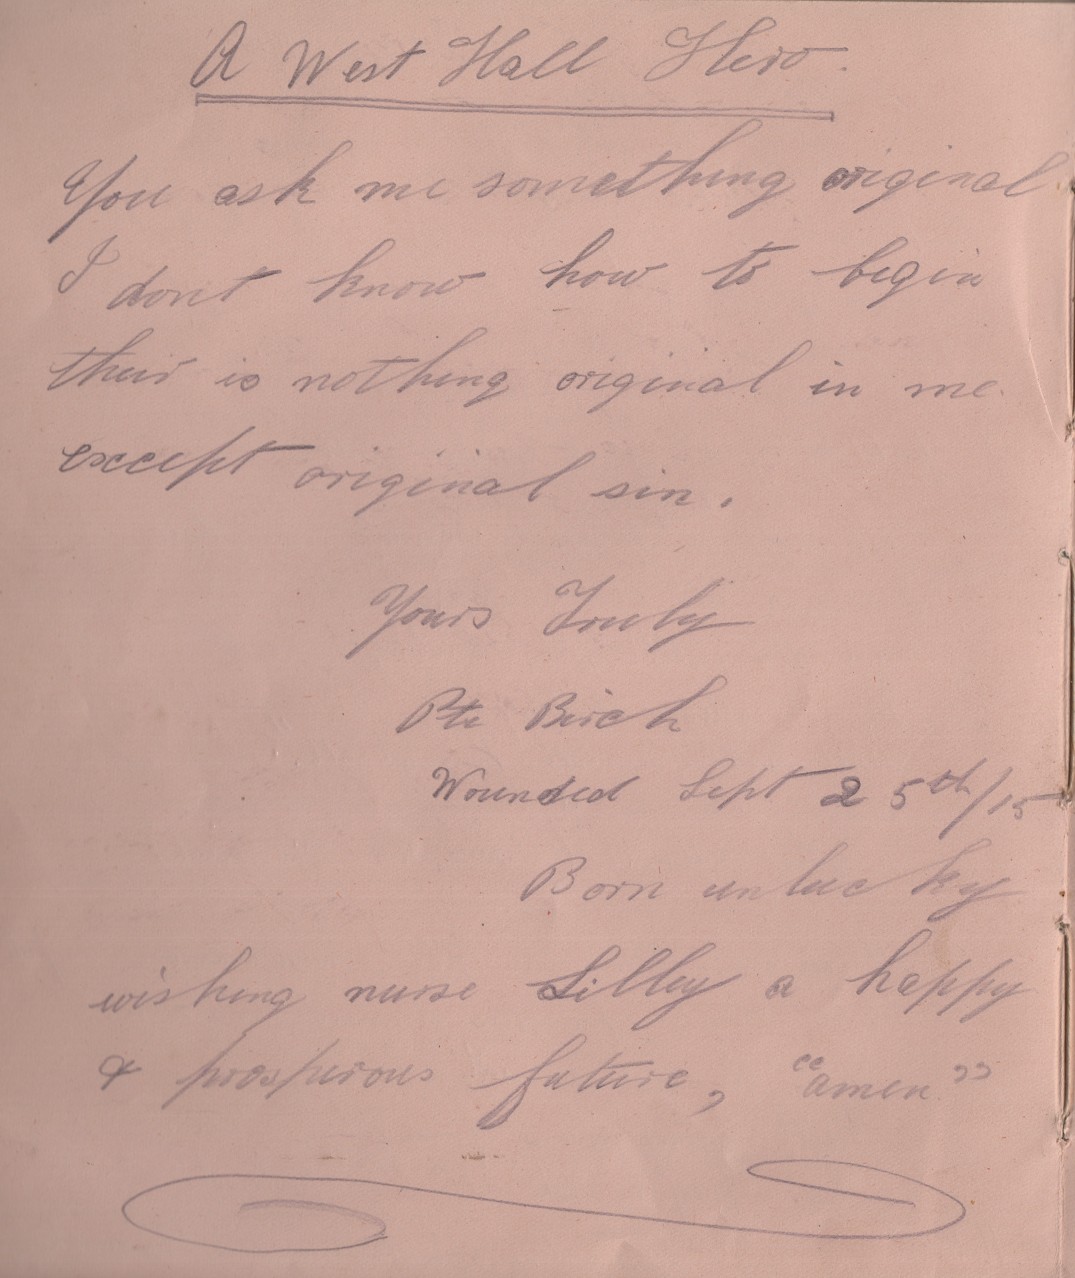 A West Hall Hero.
You ask me something original
I dont know how to begin
their is nothing original in me
except original sin.
Yours Truly
Pte Birch
Wounded Sept 25th/15
Born unlucky
wishing nurse Lilley a happy
& prosperous future, "amen"